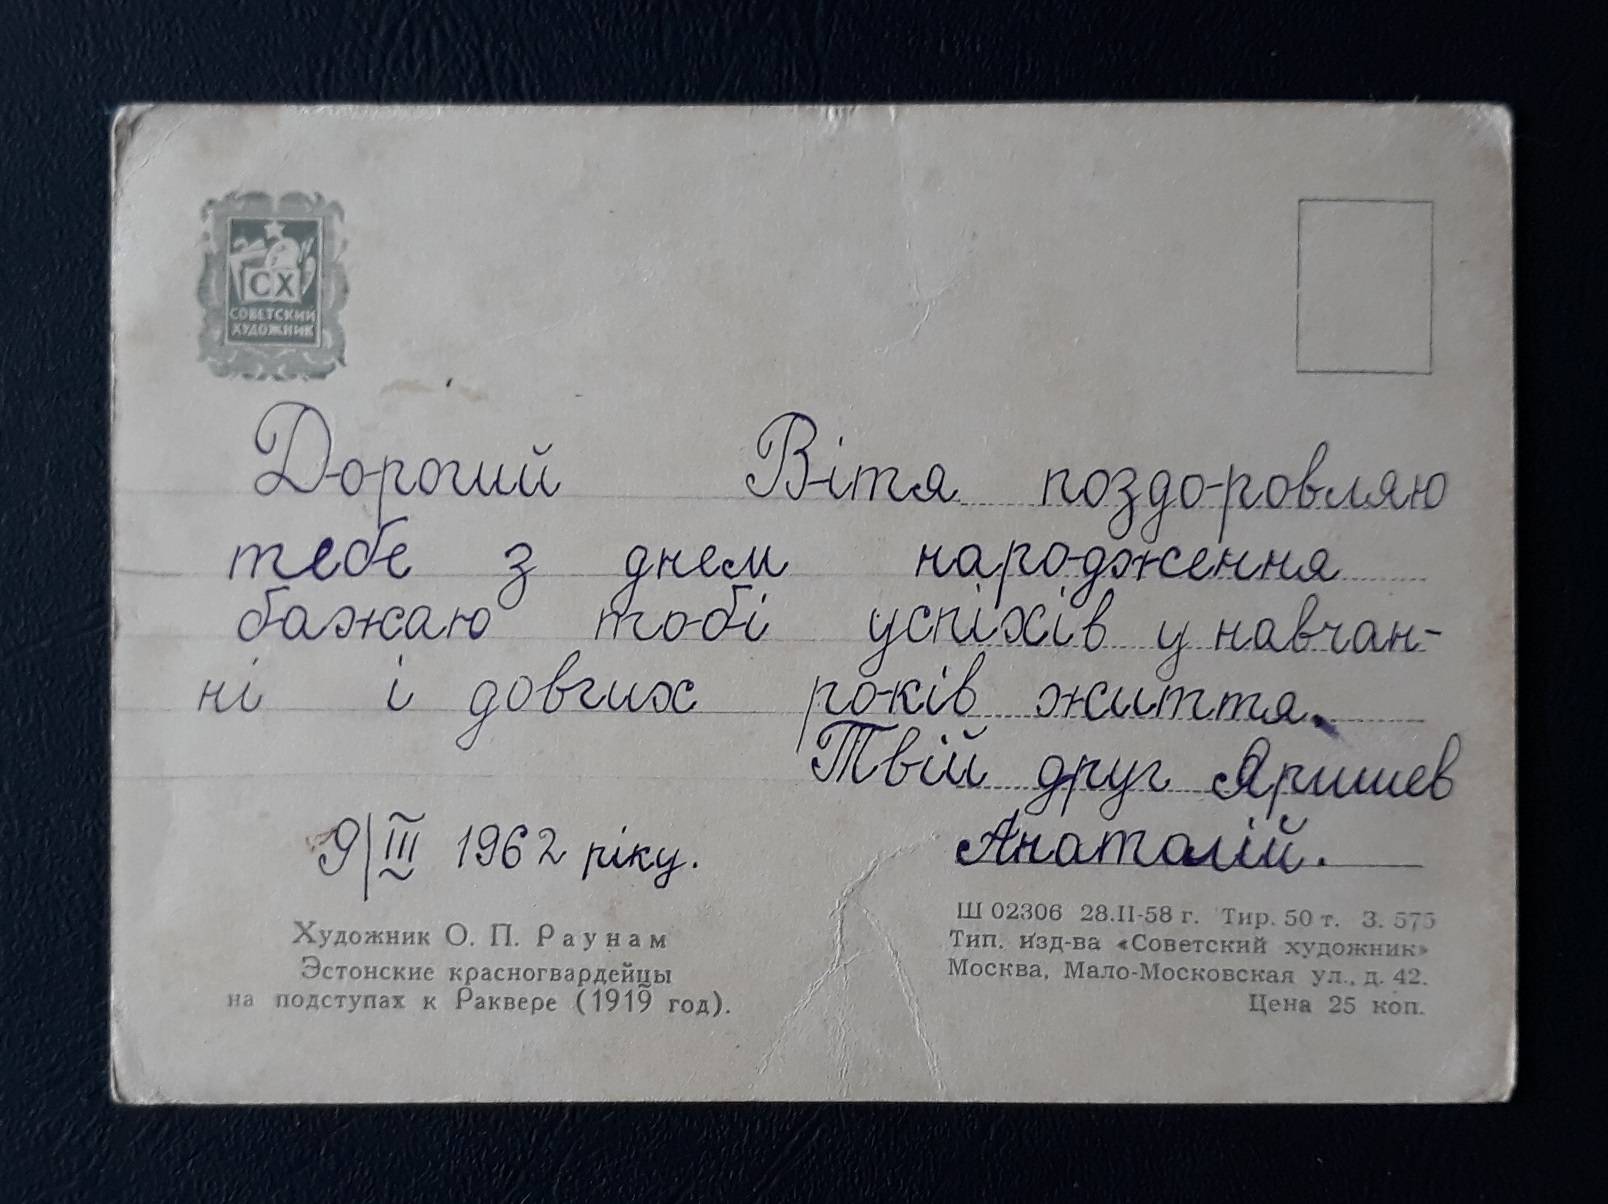 СХ
СОВЕТСКИЙ
ХУДОЖНИК
Дорогий Вітя поздоровляю
тебе з днем народження
бажаю тобі успіхів у навчан-
ні і довгих років життя.
Твій друг Яришев
Анаталій.
9/III 1962 ріку.
Художник О. П. Раунам
Эстонские красногвардейцы
на подступах к Раквере (1919 год).
Ш 02306 28.II-58 г. Тир. 50 т. З. 575
Тип. изд-ва «Советский художник»
Москва, Мало-Московская ул., д. 42.
Цена 25 коп.